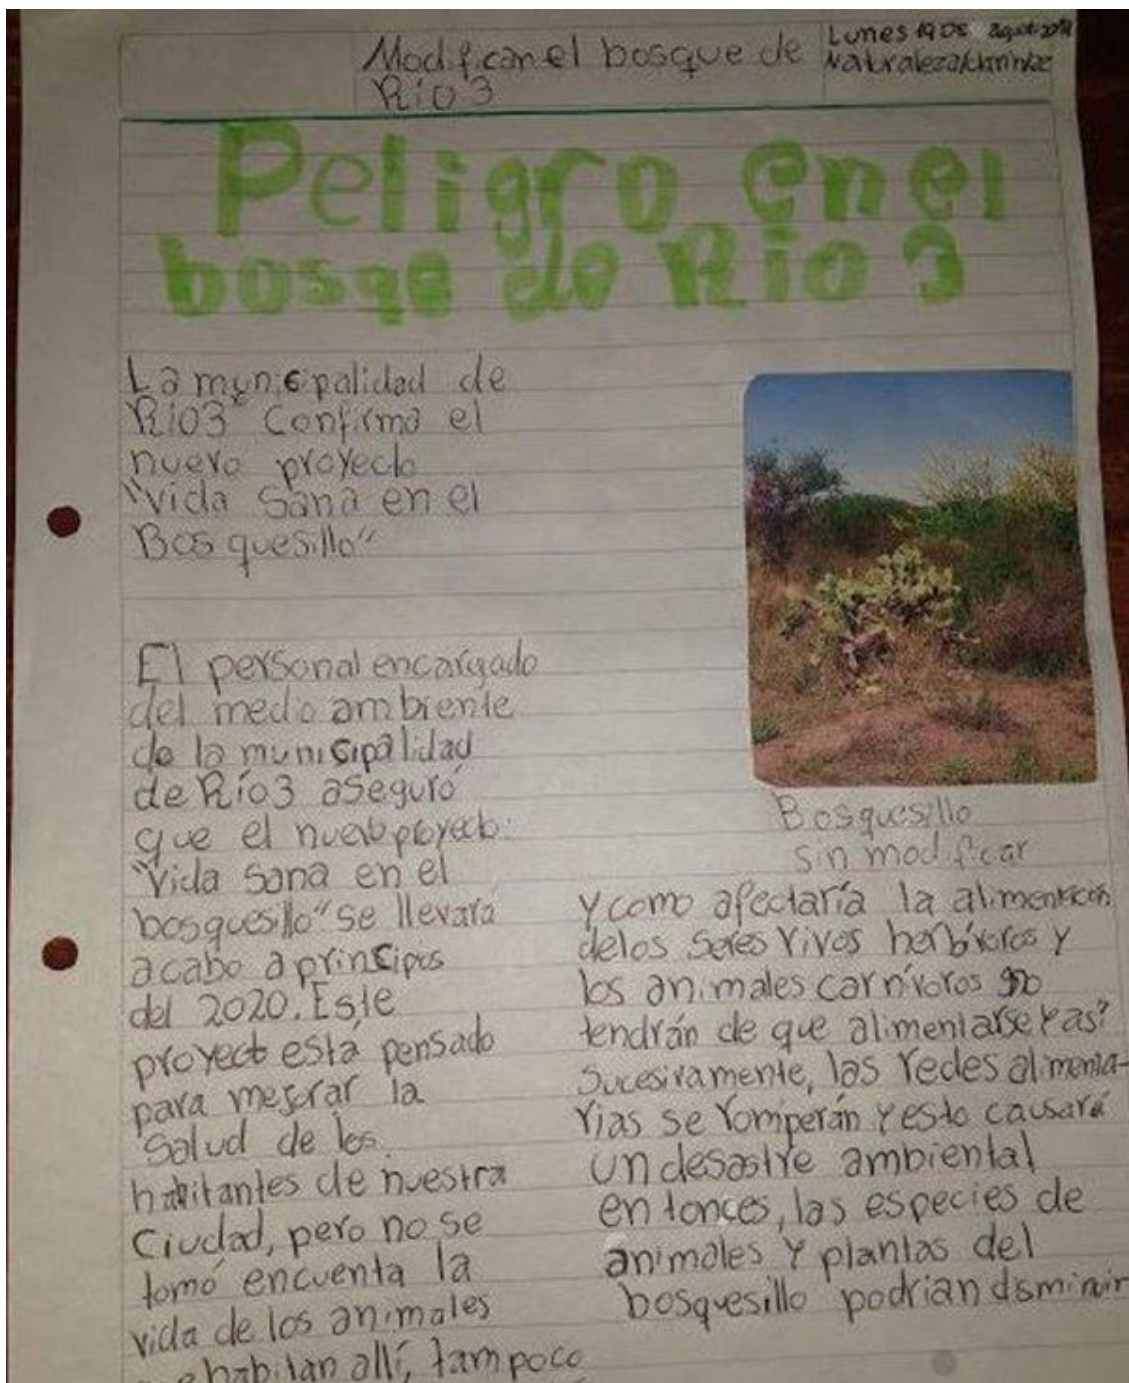 Modifican el bosque de
Río 3
Lunes 19 De agosto
Naturaleza
Peligro en el
bosqe de Rio 3
La municipalidad de
Río3 Confirma el
nuevo proyecto
"Vida Sana en el
Bosquesillo"
El personal encargado
del medio ambiente
de la munisipalidad
de Río3 aseguró
que el nuevo proyecto:
"Vida Sana en el
bosquesillo" se llevará
acabo a principios
del 2020. Este
proyecto está pensado
para mejorar la
Salud de los
habitantes de nuestra
Ciudad, pero no se
tomó encuenta la
vida de los animales
habitan allí, tampoco
Bosquesillo
sin modificar
y como afectaría la alimentación
delos seres vivos herbívoros y
los animales carnívoros no
tendrán de que alimentarse y así
sucesivamente, las redes alimenta-
rias se romperán y esto causará
un desastre ambiental
entonces, las especies de
animales y plantas del
bosquesillo podrian disminuir